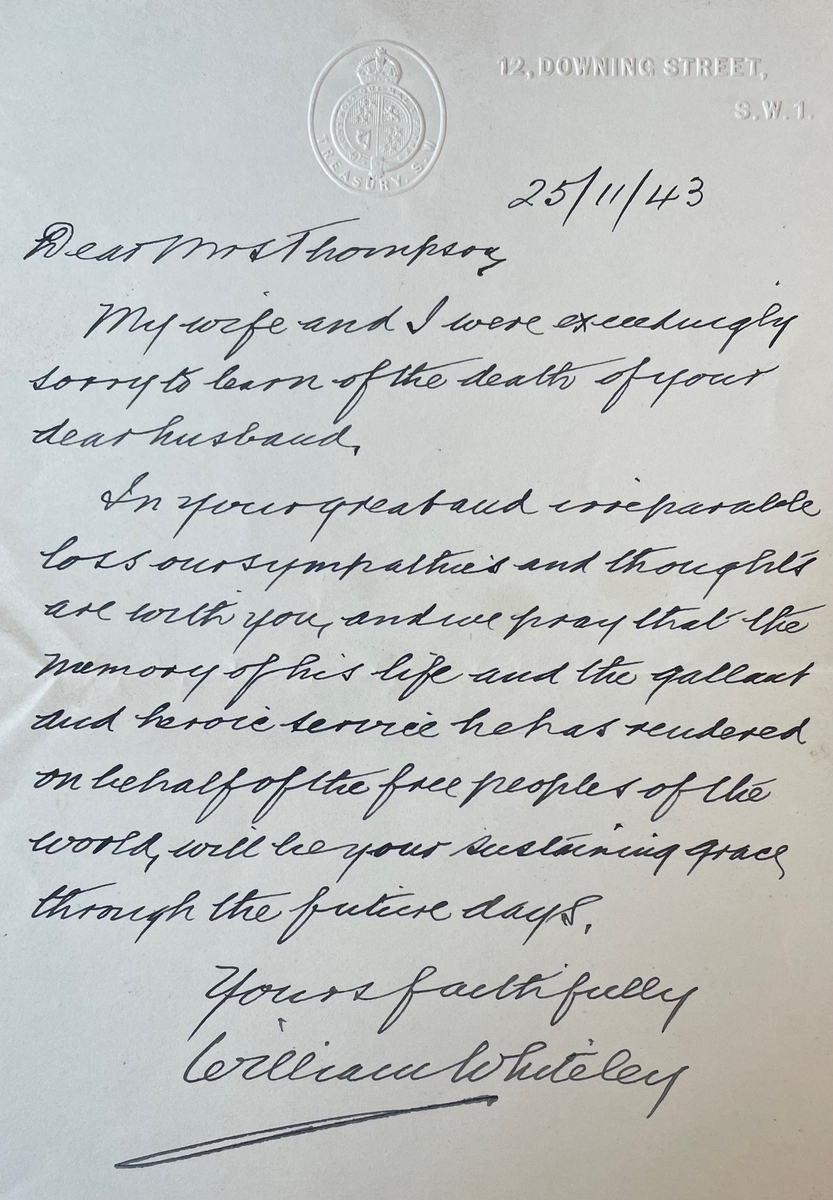 12, DOWNING STREET,
S.W.1.
TREASURY. S.W
25/11/43
Dear Mrs Thompson,
My wife and I were exceedingly
sorry to learn of the death of your
dear husband.
In your great and irreparable
loss our sympathies and thoughts
are with you, and we pray that the
memory of his life and the gallant
and heroic service he has rendered
on behalf of the free peoples of the
world, will be your sustaining grace,
through the future days.
Yours faithfully
William Whiteley